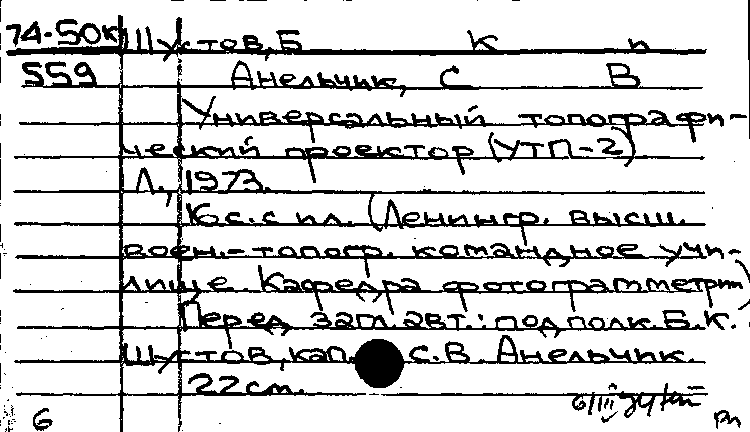 74-50к Шустов, Б К п
559 Анельчик, С В
Универсальный топографи-
ческий проектор (УТП-2)
Л., 1973.
16с. с ил. (Ленингр. высш.
воен.-топогр. командное учи-
лище. Кафедра фотограмметрии)
Перед загл. авт.: подполк. Б.К.
Шустов, кап. С.В. Анельчик.
22см.
6